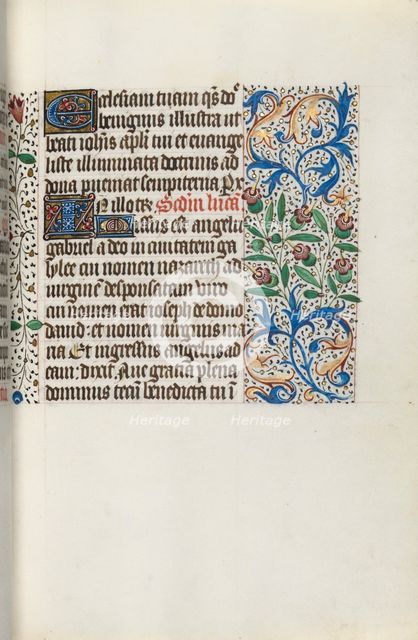 Ecclesiam tuam qs dñe
benignus illustra ut
beati iohis apli tui et euange
liste illuminata doctrinis ad
dona pueniat sempiterna. P
In illo tpr Scdm lucā
Missus est angelus
gabriel a deo in ciuitatem ga
lylee cui nomen nazareth ad
uirginē desponsatam viro
cui nomen erat ioseph de domo
dauid: et nomen uirginis ma
ria Et ingressus angelus ad
eam: dixit. Aue gracia plena
dominus tecū benedicta tu ī
Heritage
Heritage
Heritage
Heritage